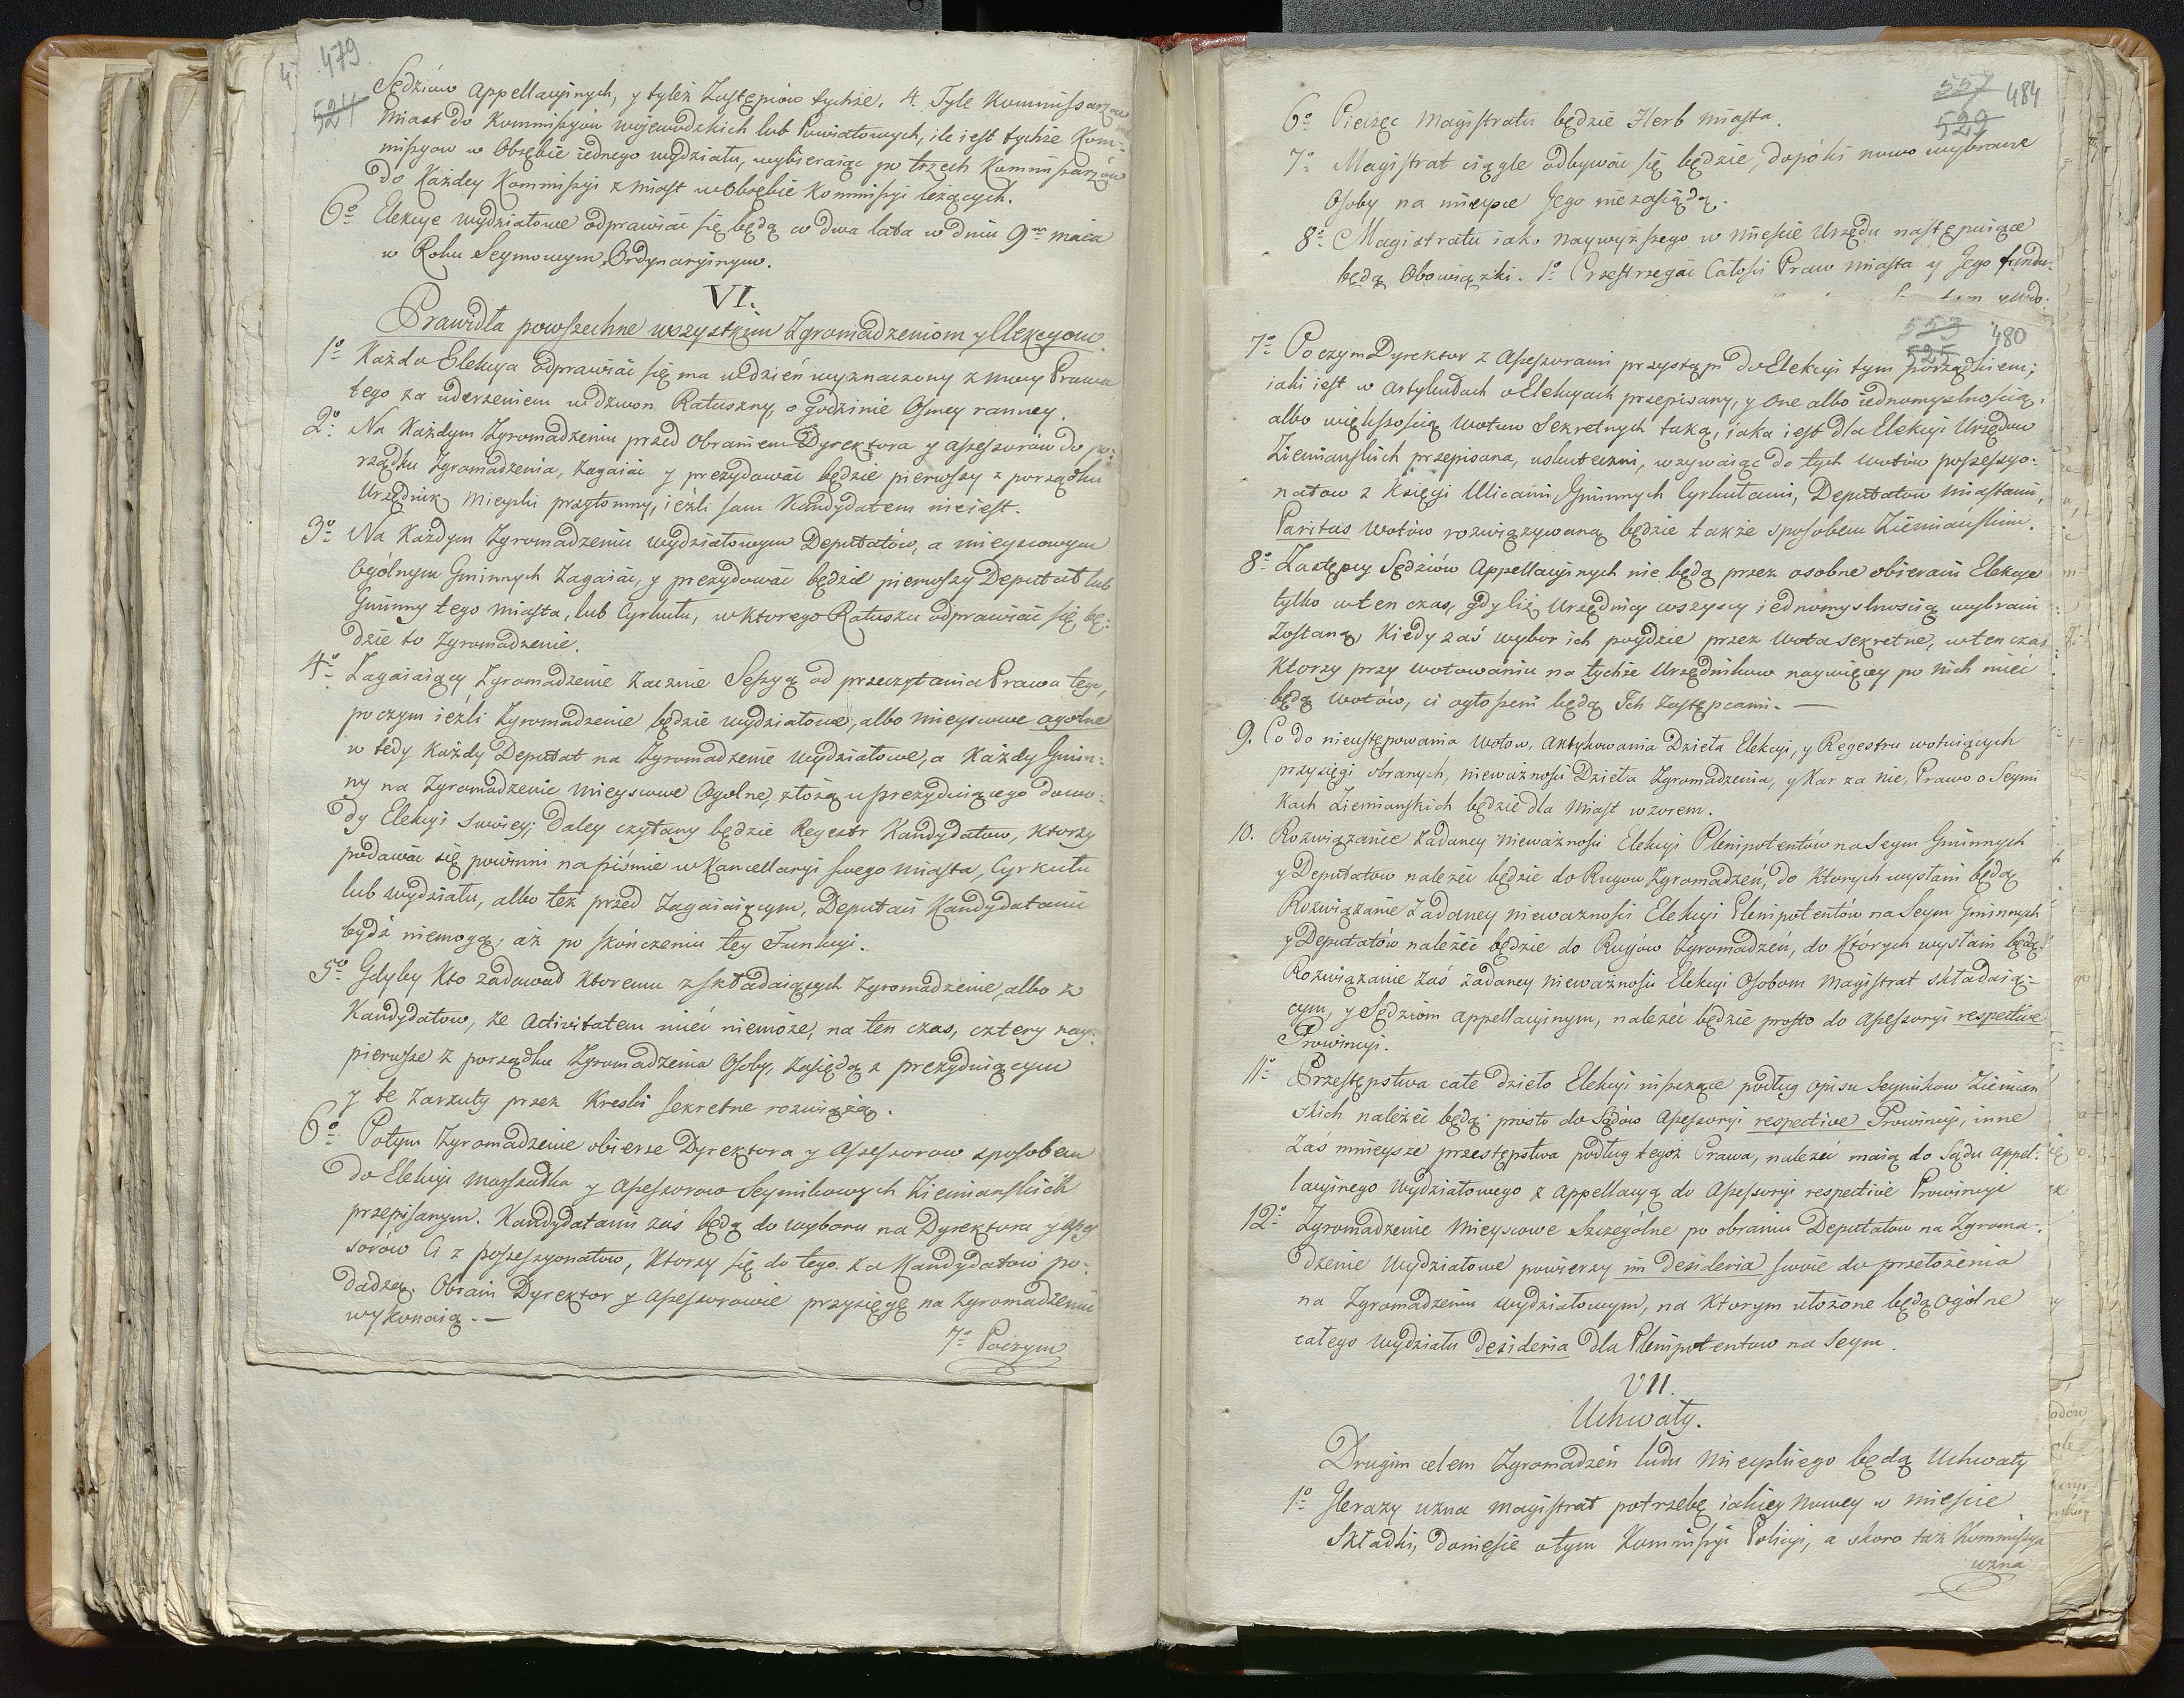 479
524
Sędziow Appellacyinych, y tyleż Zastępców tychże. 4. Tyle Kommissarzow
Miast do Kommissyow woiewodzkich lub Powiatowych, ile iest tychże Kom-
missyow w Obrębie iednego wydziału, wybieraiąc po trzech Kommissarzów
do Każdey Kommissyi z Miast w Obrębie Kommissyi leżących.
6º Elekcye wydziałowe odprawiać się będą co dwa lata w dniu 9ᵐ maia
w Roku Seymowym Ordynaryinym.
VI.
Prawidła powszechne wszystkim Zgromadzeniom y Elekcyom.
1º Każda Elekcya odprawiać się ma w dzień wyznaczony z mocy Prawa
tego za uderzeniem w dzwon Ratuszny, o godzinie Osmey ranney.
2º Na Każdym Zgromadzeniu przed obraniem Dyrektora y Assessorów do po-
rządku Zgromadzenia, Zagaiać y prezydować będzie pierwszy z porządku
Urzędnik Mieyski przytomny, ieżli sam Kandydatem nieiest.
3º Na Każdym Zgromadzeniu wydziałowym Deputatów, a mieyscowym
Ogólnym Gminnych Zagaiać, y prezydować będzie pierwszy Deputat lub
Gminny tego miasta, lub Cyrkułu, w ktorego Ratuszu odprawiać się bę-
dzie to Zgromadzenie.
4º Zagaiaiący Zgromadzenie Zacznie Sessyą od przeczytania Prawa tego,
poczym ieżli Zgromadzenie będzie wydziałowe, albo mieyscowe ogolne
w tedy Każdy Deputat na Zgromadzenie wydziałowe, a Każdy Gmin-
ny na Zgromadzenie mieyscowe Ogolne, złożą u prezyduiącego dowo-
dy Elekcyi swoiey; Daley czytany będzie Regestr Kandydatow, Ktorzy
podawać się powinni na piśmie w Kancellaryi swego miasta, Cyrkułu
lub wydziału, albo też przed Zagaiaiącym, Deputaci Kandydatami
bydź niemogą, aż po skończeniu tey Funkcyi.
5º Gdyby Kto zadawał Ktoremu z składaiących Zgromadzenie, albo z
Kandydatow, że Activitatem mieć niemoże, na ten czas, cztery nay-
pierwsze z porządku Zgromadzenia Osoby, zasiędą z prezyduiącym
y te zarzuty przez Kreski sekretne rozwiążą.
6º Potym Zgromadzenie obierze Dyrektora y Assessorow sposobem
do Elekcyi Marszałka y Assessorow Seymikowych Ziemianskich
przepisanym. Kandydatami zaś będą do wyboru na Dyrektora y Asses-
sorów Ci z possessyonatow, Ktorzy się do tego za Kandydatów po-
dadzą. Obrani Dyrektor y Assessorowie przysięgę na Zgromadzeniu
wykonaią. —
7º Poczym
557 484
529
6º Pieczęć Magistratu będzie Herb Miasta.
7º Magistrat ciągle odbywać się będzie, dopóki nowo wybrane
Osoby na mieysce Jego nie zasiądą.
8º Magistratu iako naywyższego w mieście Urzędu następuiące
będą Obowiązki. 1º Przestrzegać Całości Praw Miasta y Jego fundu-
553 480
525
7º Poczym Dyrektor z Assessorami przystąpi do Elekcyi tym porządkiem;
iaki iest w Artykułach o Elekcyach przepisany, y One albo iednomyslnością,
albo większością wotow Sekretnych taką, iaka iest dla Elekcyi Urzędow
Ziemiańskich przepisana, uskuteczni, wzywaiąc do tych wotów possessyo-
natow z Księgi Ulicami, Gminnych Cyrkułami, Deputatow Miastami,
Paritas wotów rozwiązywaną będzie także sposobem Ziemiańskim.
8º Zastępcy Sędziów Appellacyinych nie będą przez osobne obierani Elekcye
tylko w ten czas, gdyliż Urzędnicy wszyscy iednomyslnością wybrani
zostaną, Kiedy zaś wybor ich poydzie przez wota sekretne, w ten czas
Ktorzy przy wotowaniu na tychże Urzędnikow naywięcey po nich mieć
będą wotów, ci ogłoszeni będą Ich Zastępcami. —
9. Co do nieustępowania wotow, Aktykowania Dzieła Elekcyi, y Regestru wotuiących
przysięgi obranych, nieważnosci Dzieła Zgromadzenia, y Kar za nie, Prawo o Seymi
kach Ziemianskich będzie dla Miast wzorem.
10. Rozwiązanie Zadaney nieważnosci Elekcyi Plenipotentów na Seym Gminnych
y Deputatow należeć będzie do Rugow Zgromadzeń, do Ktorych wysłani będą
Rozwiązanie Zadaney nieważnosci Elekcyi Plenipotentów na Seym Gminnych
y Deputatów należeć będzie do Rugów Zgromadzeń, do Których wysłani będą.
Rozwiązanie Zaś zadaney nieważnosci Elekcyi Osobom Magistrat składaią-
cym, y Sędziom appellacyinym, należeć będzie prosto do Assessoryi respective
Prowincyi.
11º Przestępstwa całe dzieło Elekcyi niszczące podług opisu Seymikow Ziemian
skich należeć będą prosto do Sądów Assessoryi respective Prowincyi, inne
zaś mnieysze przestępstwa podług tegoż Prawa, należeć maią do Sądu appel-
lacyinego wydziałowego z Appellacyą do Assessoryi respective Prowincyi
12º Zgromadzenie Mieyscowe Szczególne po obraniu Deputatow na Zgroma-
dzenie wydziałowe powierzy im desideria swoie do przełożenia
na Zgromadzeniu wydziałowym, na Ktorym ułożone będą ogólne
całego wydziału desideria dla Plenipotentow na Seym.
VII.
Uchwały.
Drugim celem Zgromadzeń ludu Mieyskiego będą Uchwały
1º Ilerazy uzna Magistrat potrzebę iakiey nowey w mieście
Składki, doniesie o tym Kommissyi Policyi, a skoro taż Kommissya
uzna